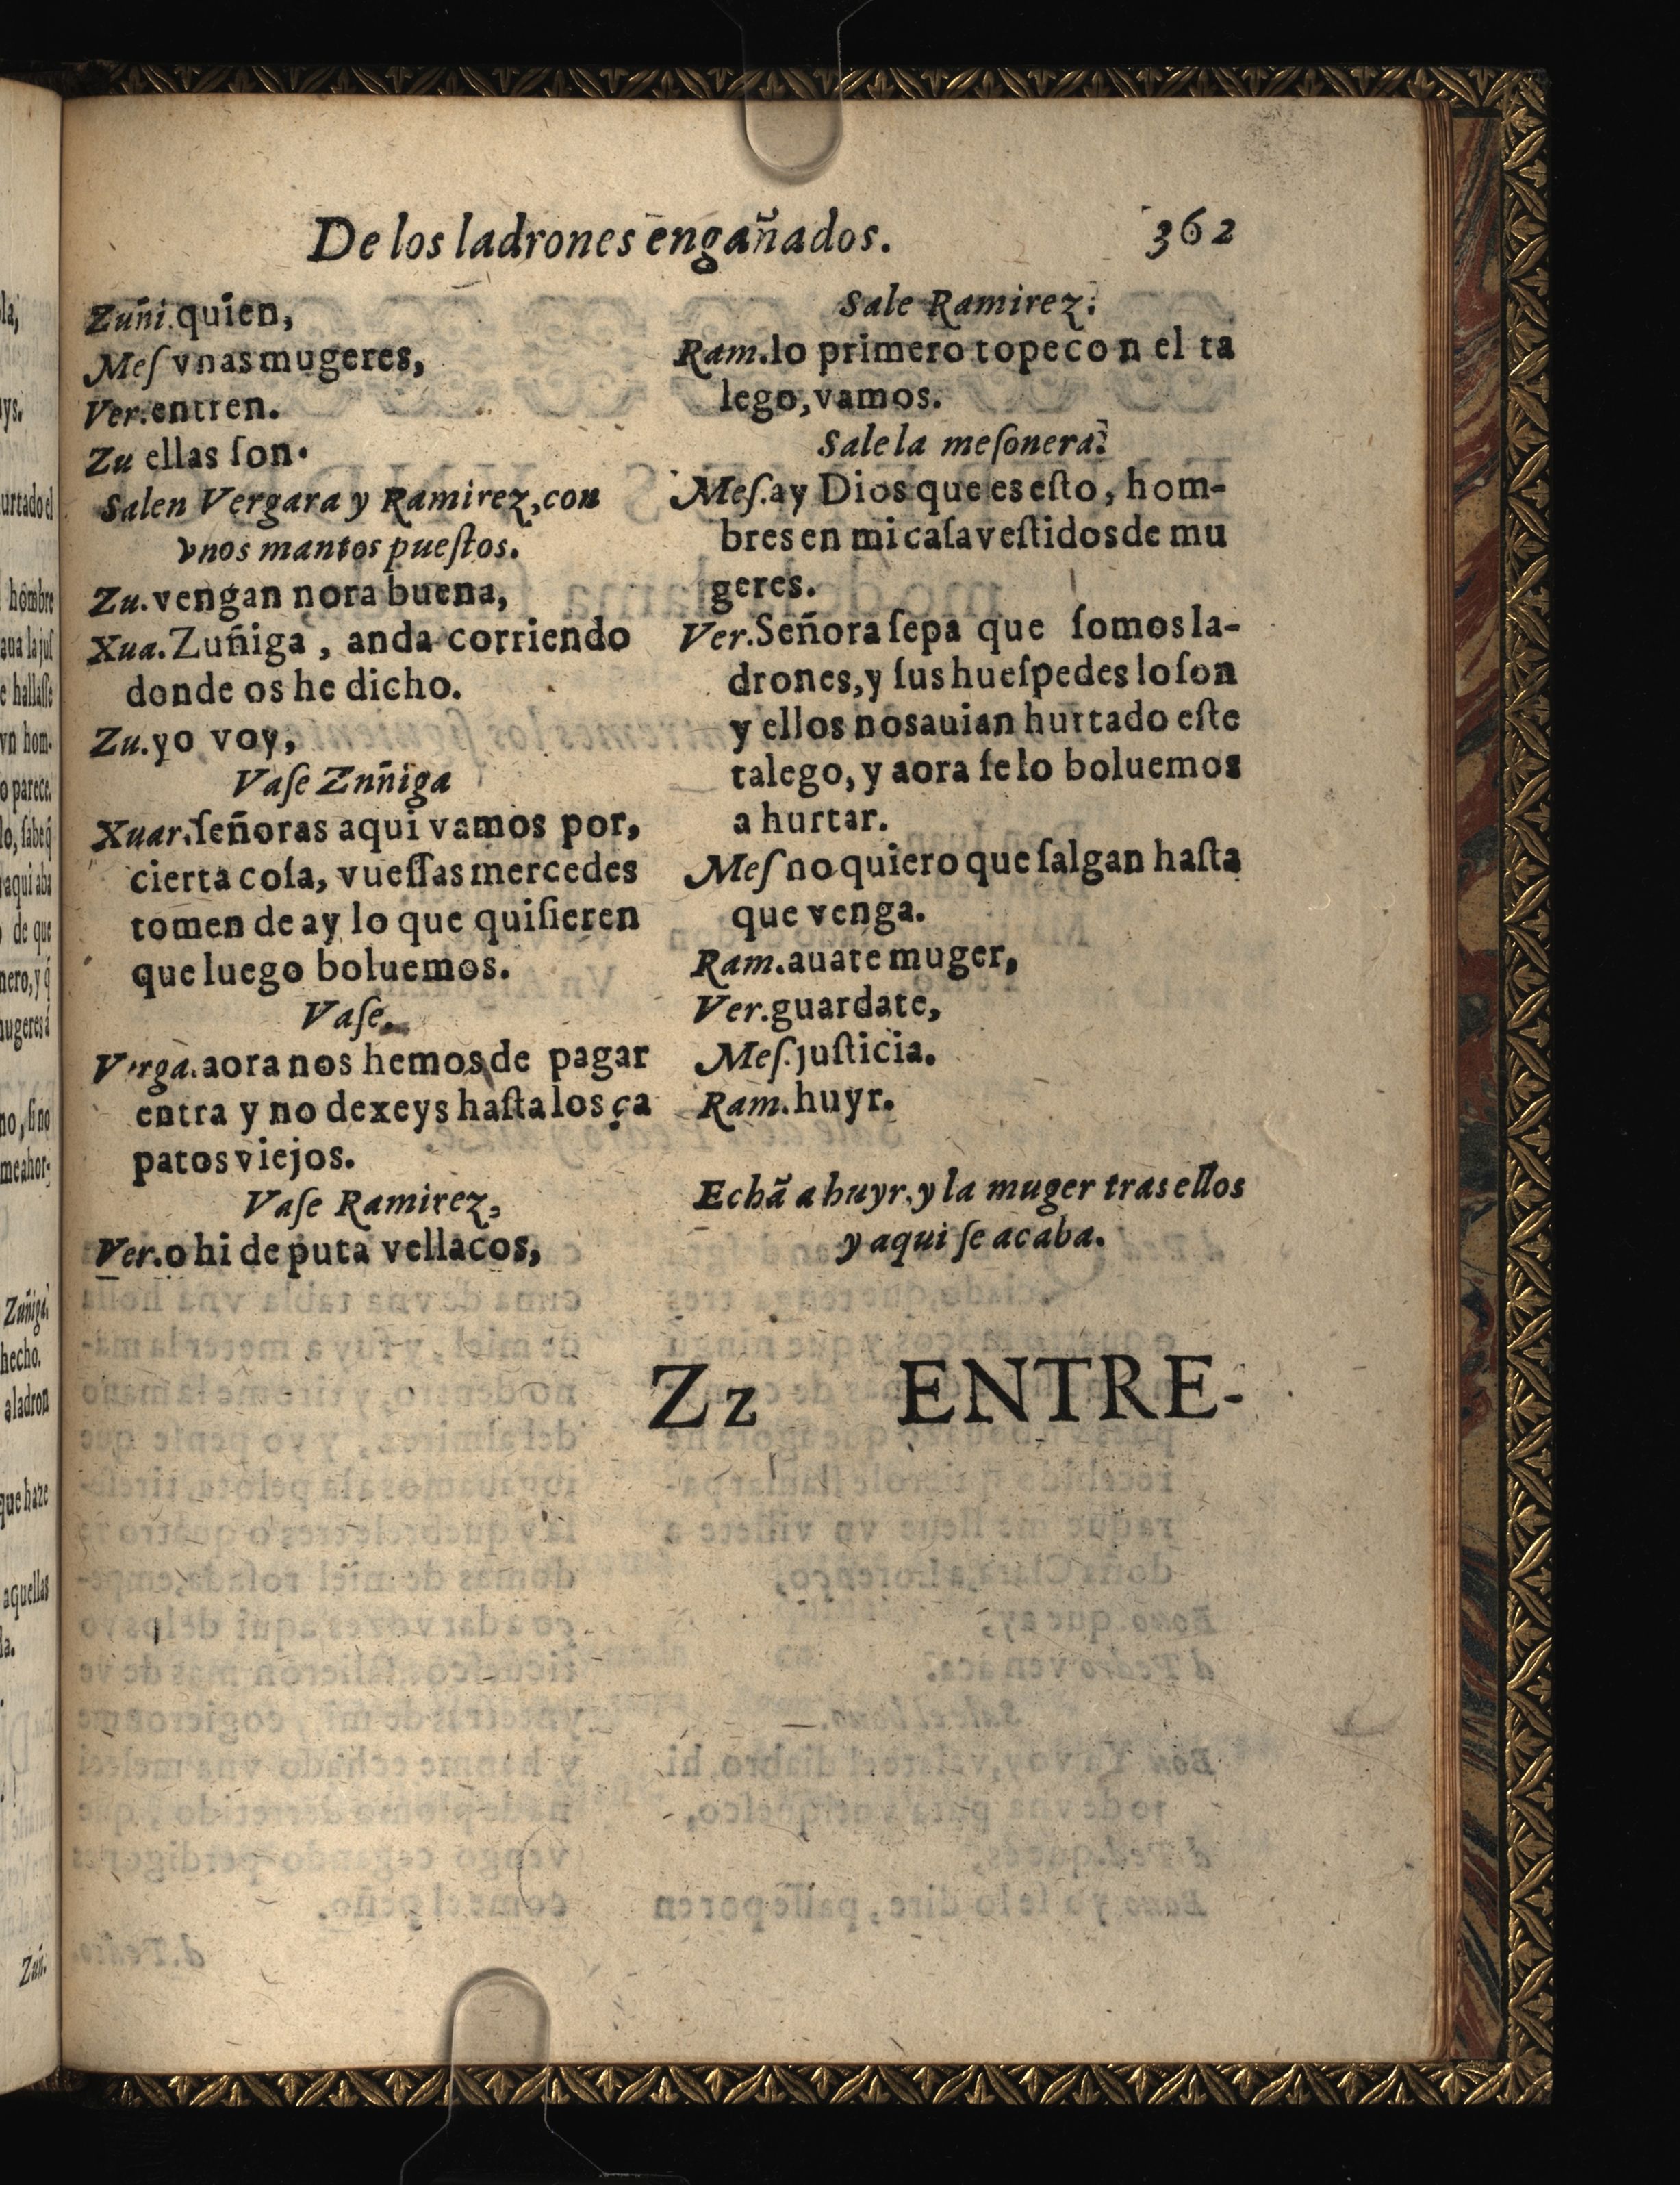 De los ladrones engañados.
362
Zuñi.quien,
Meſ vnas mugeres,
Ver.entren.
Zu ellas ſon.
Salen Vergara y Ramirez,con
vnos mantos pueſtos.
Zu.vengan nora buena,
Xua.Zuñiga , anda corriendo
donde os he dicho.
Zu.yo voy,
Vaſe Znñiga
Xuar.ſeñoras aqui vamos por,
cierta coſa, vueſſas mercedes
tomen de ay lo que quiſieren
que luego boluemos.
Vaſe.
Verga.aora nos hemos de pagar
entra y no dexeys haſta los ça
patos viejos.
Vaſe Ramirez,
Ver.o hi de puta vellacos,
Sale Ramirez:
Ram.lo primero tope con el ta
lego,vamos.
Sale la meſonera?
Meſ.ay Dios que es eſto, hom-
bres en mi caſa veſtidos de mu
geres.
Ver.Señora ſepa que ſomos la-
drones,y ſus hueſpedes lo ſon
y ellos nos auian hurtado eſte
talego, y aora ſe lo boluemos
a hurtar.
Meſ no quiero que ſalgan haſta
que venga.
Ram.auate muger,
Ver.guardate,
Meſ.juſticia.
Ram.huyr.
Echã a huyr,y la muger tras ellos
y aqui ſe acaba.
Zz ENTRE-